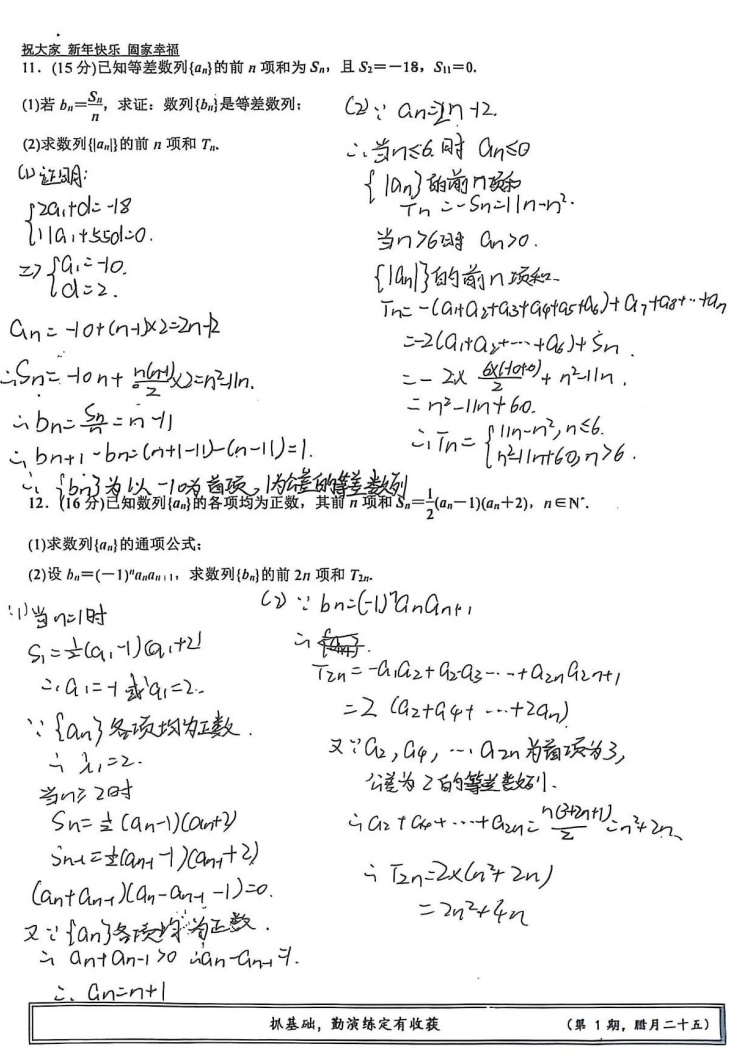 祝大家 新年快乐 阖家幸福
11. (15 分)已知等差数列{aₙ}的前 n 项和为 Sₙ，且 S₂=−18，S₁₁=0.
(1)若 bₙ=Sₙ/n，求证：数列{bₙ}是等差数列；
(2)求数列{|aₙ|}的前 n 项和 Tₙ.
(1)证明:
{2a₁+d=-18
11a₁+55d=0.
=>{a₁=-10.
d=2.
aₙ=-10+(n-1)×2=2n-12
∴Sₙ=-10n+n(n-1)/2×2=n²-11n.
∴bₙ=Sₙ/n=n-11
∴bₙ₊₁-bₙ=(n+1-11)-(n-11)=1.
∴{bₙ}为以-10为首项,1为公差的等差数列
(2)∵aₙ=2n-12.
∴当n≤6时 aₙ≤0
{|aₙ}的前n项和
Tₙ=-Sₙ=11n-n².
当n>6时 aₙ>0.
{|aₙ|}的前n项和
Tₙ=-(a₁+a₂+a₃+a₄+a₅+a₆)+a₇+a₈+…+aₙ
=-2(a₁+a₂+…+a₆)+Sₙ.
=-2×6×(-10+0)/2+n²-11n.
=n²-11n+60.
∴Tₙ={11n-n²,n≤6.
n²-11n+60,n>6.
12. (16 分)已知数列{aₙ}的各项均为正数，其前 n 项和 Sₙ=1/2(aₙ−1)(aₙ+2)，n∈N*.
(1)求数列{aₙ}的通项公式；
(2)设 bₙ=(−1)ⁿaₙaₙ₊₁，求数列{bₙ}的前 2n 项和 T₂ₙ.
(1)当n=1时
S₁=1/2(a₁-1)(a₁+2)
∴a₁=-1或a₁=2.
∵{aₙ}各项均为正数.
∴a₁=2.
当n≥2时
Sₙ=1/2(aₙ-1)(aₙ+2)
Sₙ₋₁=1/2(aₙ₋₁-1)(aₙ₋₁+2)
(aₙ+aₙ₋₁)(aₙ-aₙ₋₁-1)=0.
又∵{aₙ}各项均为正数.
∴aₙ+aₙ₋₁>0 ∴aₙ-aₙ₋₁=1.
∴aₙ=n+1
(2)∵bₙ=(-1)ⁿaₙaₙ₊₁
∴
T₂ₙ=-a₁a₂+a₂a₃-…+a₂ₙa₂ₙ₊₁
=2(a₂+a₄+…+2aₙ)
又∵a₂,a₄,…a₂ₙ为首项为3,
公差为2的等差数列.
∴a₂+a₄+…+a₂ₙ=n(3+2n+1)/2=n²+2n.
∴T₂ₙ=2×(n²+2n)
=2n²+4n
抓基础，勤演练定有收获
（第 1 期，腊月二十五）